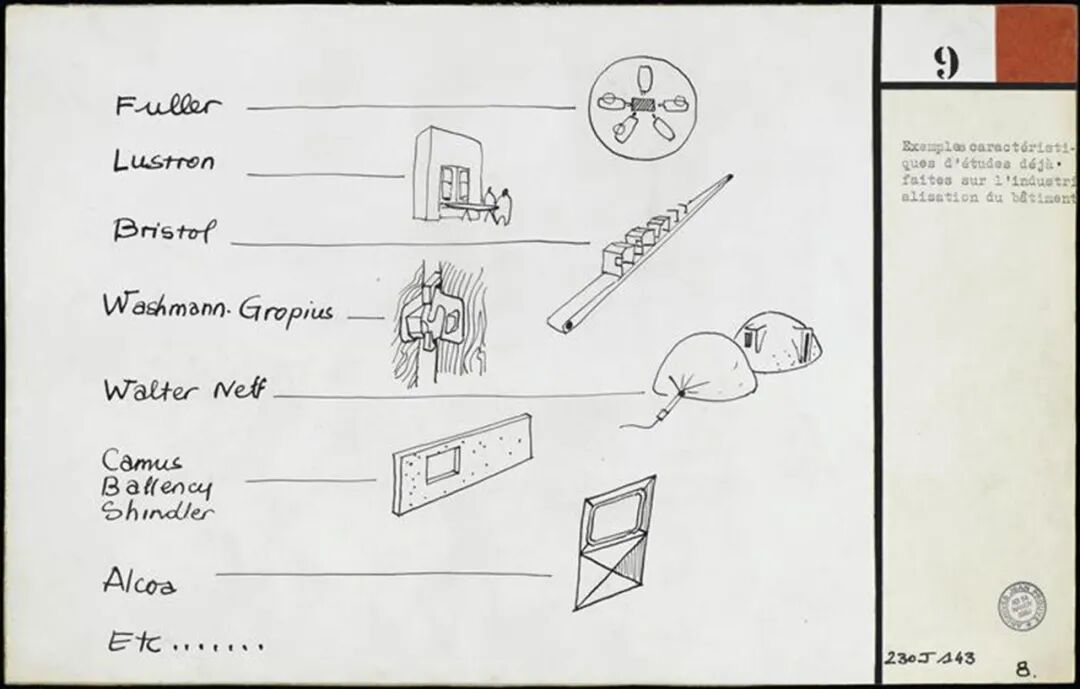 Fuller
Lustron
Bristol
Washmann. Gropius
Walter Neff
Camus
Ballency
Shindler
Alcoa
Etc.......
9
Exemples caractéristi-
ques d'études déjà
faites sur l'industri
alisation du bâtiment
230J 143
8.